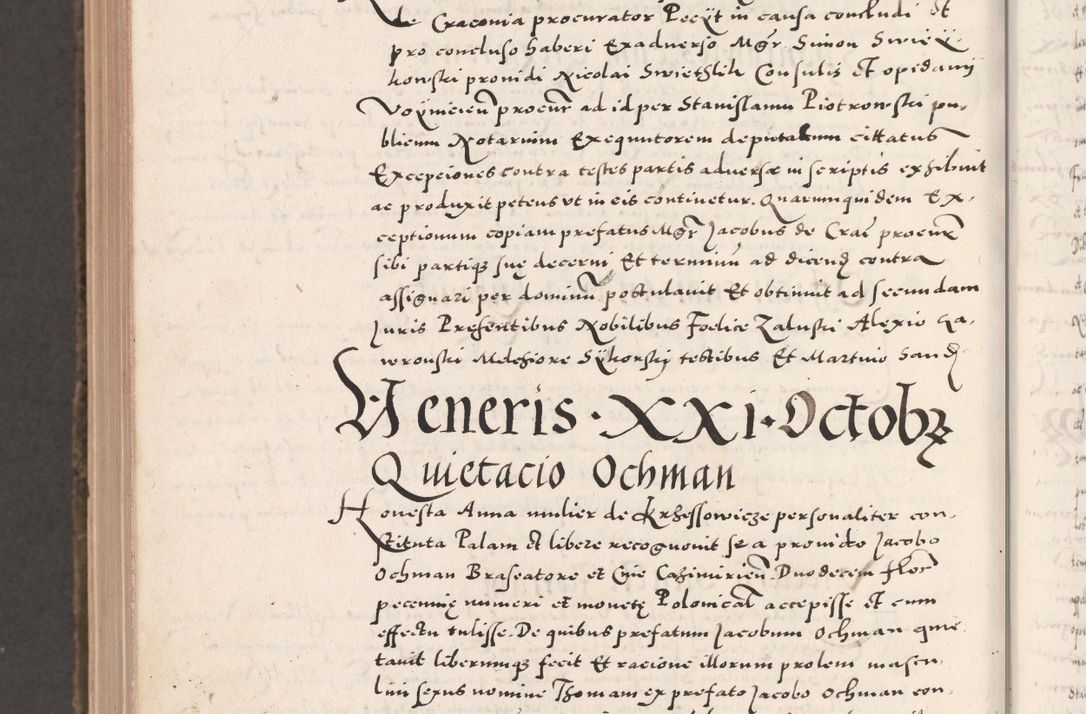 de Craconia procurator Pecyt in causa concludi et
pro concluso haberi Exaduerso Mgr Simon Swiey-
kowski prouidi Nicolai Swietslik Consulis et opidanij
Voymicien procur ad id per Stanislaum Piotrowski pu-
blicum Notarium Exequutorem deputatum cittatus
Excepciones contra testes partis aduersæ in scriptis exhibuit
ac produxit petens vt in eis continetur. Quarumquidem Ex-
ceptionum copiam prefatus Mgr Jacobus de Crac procur
sibi partiq3 suę decerni Et terminum ad dicend contra
assignari per dominum postulauit Et obtinuit ad secundam
Juris Presentibus Nobilibus Foelice Zaluski Alexio Ga-
wronski Melchiore Sykorski testibus Et Martino Sand
Veneris · XXI · Octobr
Quietacio Ochman
Honesta Anna mulier de Krzessowicze personaliter con-
stituta Palam et libere recognouit se a prouido Jacobo
Ochman Braseatore et Ciue Casimirien Duodecem floren
pecunię numeri et monetę Polonical accepisse et cum
effectu tulisse. De quibus prefatum Jacobum Ochman quie
tauit liberumq3 fecit Et racione illorum prolem mascu-
lini sexus nomine Thomam ex prefato Jacobo Ochman con-